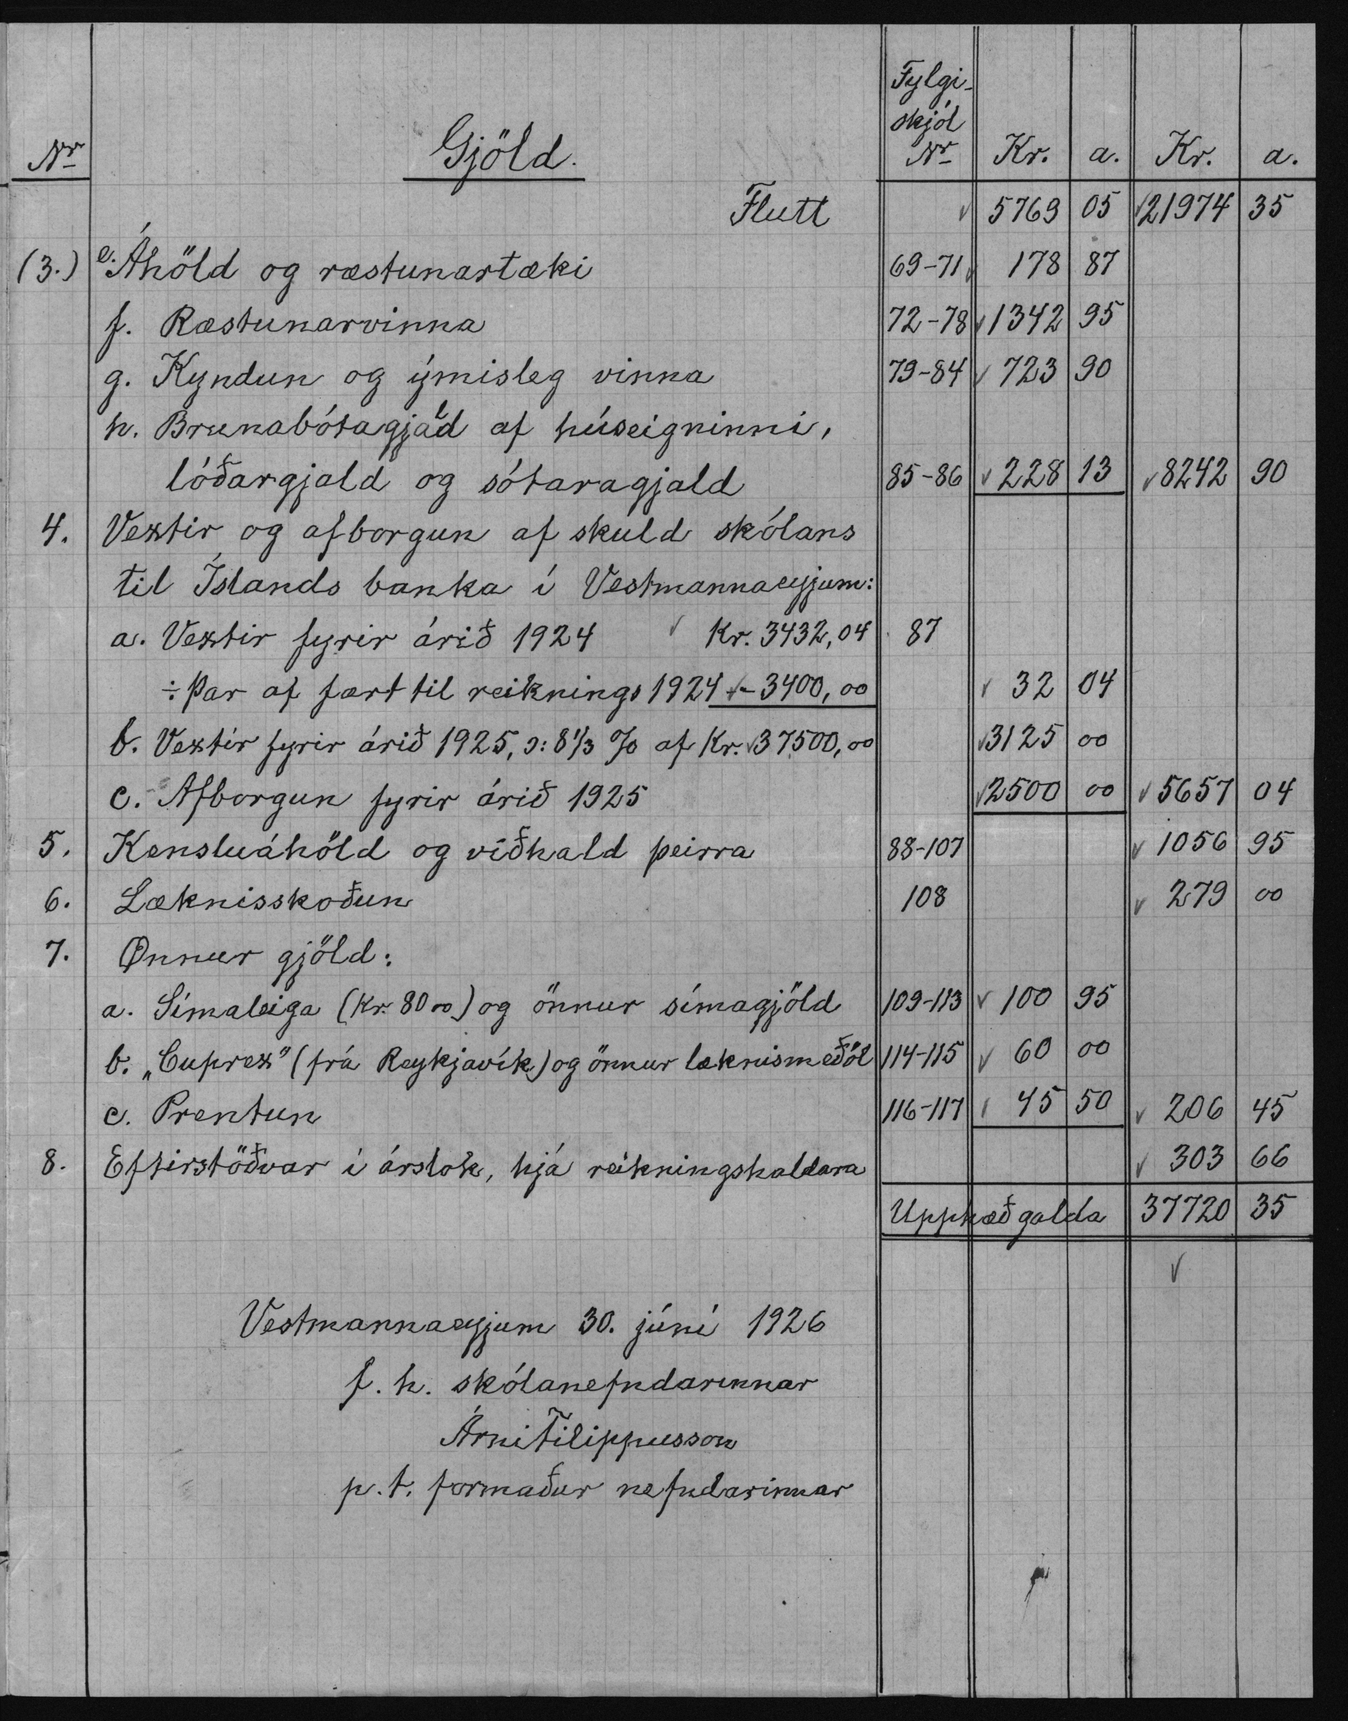 Nr Gjöld. Fylgiskjöl Nr Kr. a. Kr. a.
Flutt 5769 05 21974 35
(3.) e. Áhöld og ræstunartæki 69-71 178 87
f. Ræstunarvinna 72-78 1342 95
g. Kyndun og ýmisleg vinna 79-84 723 90
h. Brunabótagjald af húseigninni,
lóðargjald og sótaragjald 85-86 228 13 8242 90
4. Vextir og afborgun af skuld skólans
til Íslands banka í Vestmannaeyjum:
a. Vextir fyrir árið 1924 Kr. 3432,04 87
÷ Þar af fært til reiknings 1924 - 3400,00 32 04
b. Vextir fyrir árið 1925, ɔ: 8 1/3 % af Kr. 37500,00 3125 00
c. Afborgun fyrir árið 1925 2500 00 5657 04
5. Kensluáhöld og viðhald þeirra 88-107 1056 95
6. Læknisskoðun 108 279 00
7. Önnur gjöld:
a. Símaleiga (Kr. 80 00) og önnur símagjöld 109-113 100 95
b. „Cuprex” (frá Reykjavík) og önnur læknismeðöl 114-115 60 00
c. Prentun 116-117 45 50 206 45
8. Eftirstöðvar í árslok, hjá reikningshaldara 303 66
Upphæð gjalda 37720 35
Vestmannaeyjum 30. júní 1926
f. h. skólanefndarinnar
Árni Filippusson
p.t. formaður nefndarinnar